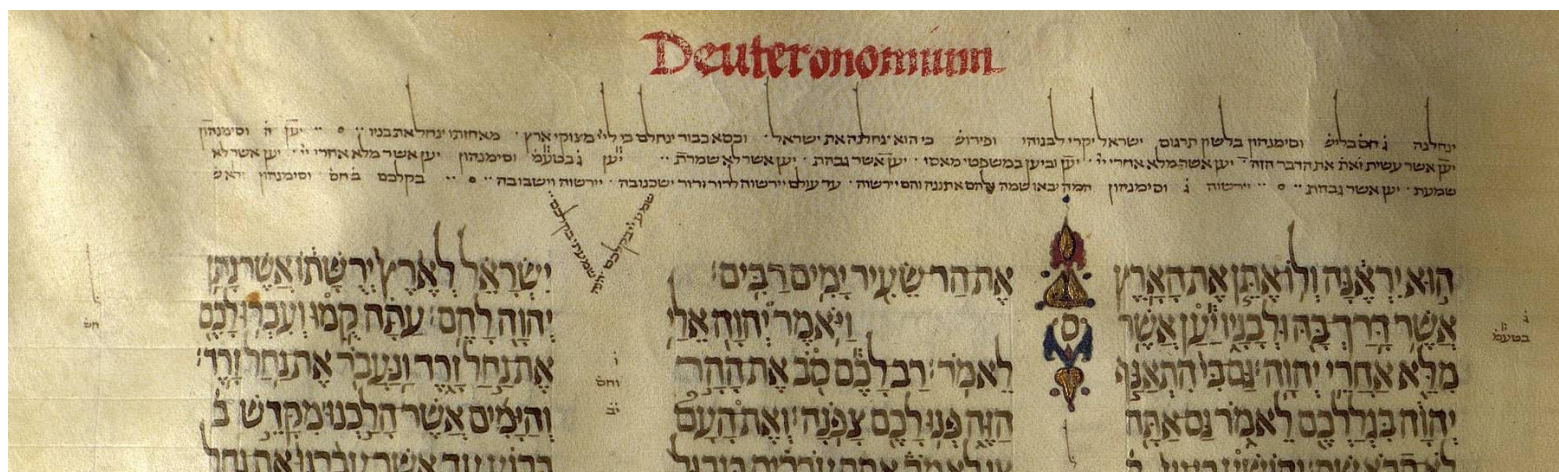 Deuteronomium
ינחלנה ג חס בליש וסימנהון בלשון תרגום ישראל יקרי לבנוהי ופירוש כי הוא ינחלנה את ישראל · וכסא כבוד ינחלם כי ליי מצוקי ארץ · מאחזתו ינחל את בניו ·· ° ·· יען ה וסימנהון
יען אשר עשית זאת את הדבר הזה · יען אשר מלא אחרי יי · יען וביען במשפטי מאסו · יען אשר גבהת · יען אשר לא שמרת ·· יען ג בטעמ וסימנהון יען אשר מלא אחרי יי · יען אשר לא
שמעת · יען אשר גבהת ·· ° ·· יירשוה ג וסימנהון המה יבאו שמה ולהם אתננה והם יירשוה · עד עולם יירשוה לדור ודור ישכנו בה · יירשוה וישבו בה ·· ° ·· בקלכם ב חס וסימנהון
שמע יי בקלכם
שמעתי בקלכם
ה֣וּא יִרְאֶ֔נָּה וְלֽוֹ־אֶתֵּ֧ן אֶת־הָאָ֛רֶץ
אֲשֶׁ֥ר דָּֽרַךְ־בָּ֖הּ וּלְבָנָ֑יו יַ֕עַן אֲשֶׁ֥ר
מִלֵּ֖א אַחֲרֵ֥י יְהוָֽה׃ גַּם־בִּי֙ הִתְאַנַּ֣ף
יְהוָ֔ה בִּגְלַלְכֶ֖ם לֵאמֹ֑ר גַּם־אַתָּ֖ה
ג
בטעמ
ס
אֶת־הַר־שֵׂעִ֖יר יָמִ֥ים רַבִּֽים׃
וַיֹּ֥אמֶר יְהוָ֖ה אֵלַ֥י
לֵאמֹֽר׃ רַב־לָכֶ֕ם סֹ֖ב אֶת־הָהָ֣ר
הַזֶּ֑ה פְּנ֥וּ לָכֶ֖ם צָפֹֽנָה׃ וְאֶת־הָעָם֮
צַ֣ו לֵאמֹר֒ אַתֶּ֣ם עֹֽבְרִ֗ים בִּגְבוּל֙
ו
וחס
יב
יִשְׂרָאֵ֗ל לְאֶ֙רֶץ֙ יְרֻשָּׁת֔וֹ אֲשֶׁר־נָתַ֥ן
יְהוָ֖ה לָהֶֽם׃ עַתָּ֗ה קֻ֛מוּ וְעִבְר֥וּ לָכֶ֖ם
אֶת־נַ֣חַל זָ֑רֶד וַֽנַּעֲבֹ֖ר אֶת־נַ֥חַל זָֽרֶד׃
וְהַיָּמִ֞ים אֲשֶׁר־הָלַ֣כְנוּ מִקָּדֵ֣שׁ ב
בַּרְנֵ֗עַ עַ֤ד אֲשֶׁר־עָבַ֙רְנוּ֙ אֶת־נַ֣חַל
חס